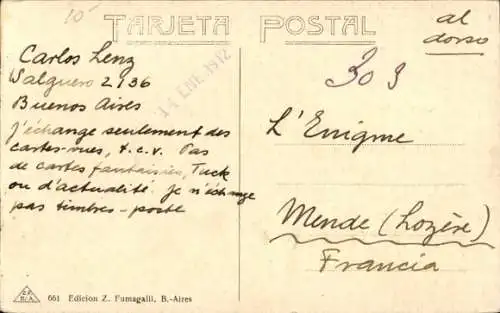 10-
TARJETA POSTAL
al
dorso
Carlos Lenz
Salguero 2136
Buenos Aires
14 ENE 1912
303
j'échange seulement des
cartes-vues, t.c.v. Pas
de cartes fantaisies, Tuck
ou d'actualité. Je n'échange
pas timbres-poste
L'Enigme
Mende (Lozère)
Francia
661 Edicion Z. Fumagalli, B.-Aires